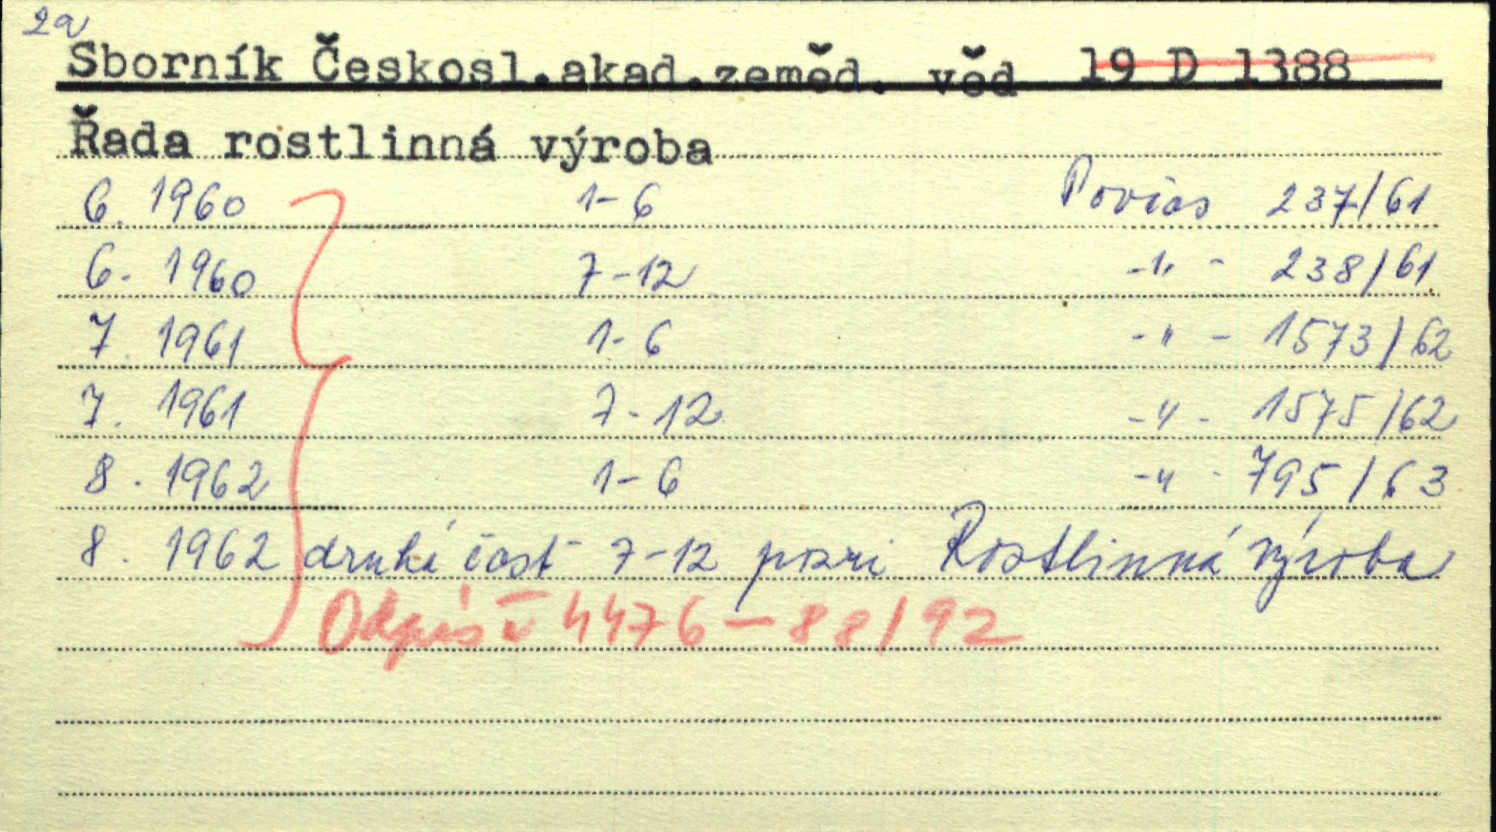 2a
Sborník Českosl.akad.zeměd. věd 19 D 1388
Řada rostlinná výroba
6. 1960 1-6 Povias 237/61
6. 1960 7-12 -"- 238/61
7. 1961 1-6 -"- 1573/62
7. 1961 7-12 -"- 1575/62
8. 1962 1-6 -"- 795/63
8. 1962 druhá část 7-12 pozri Rostlinná výroba
Odpis č 4476-88/92